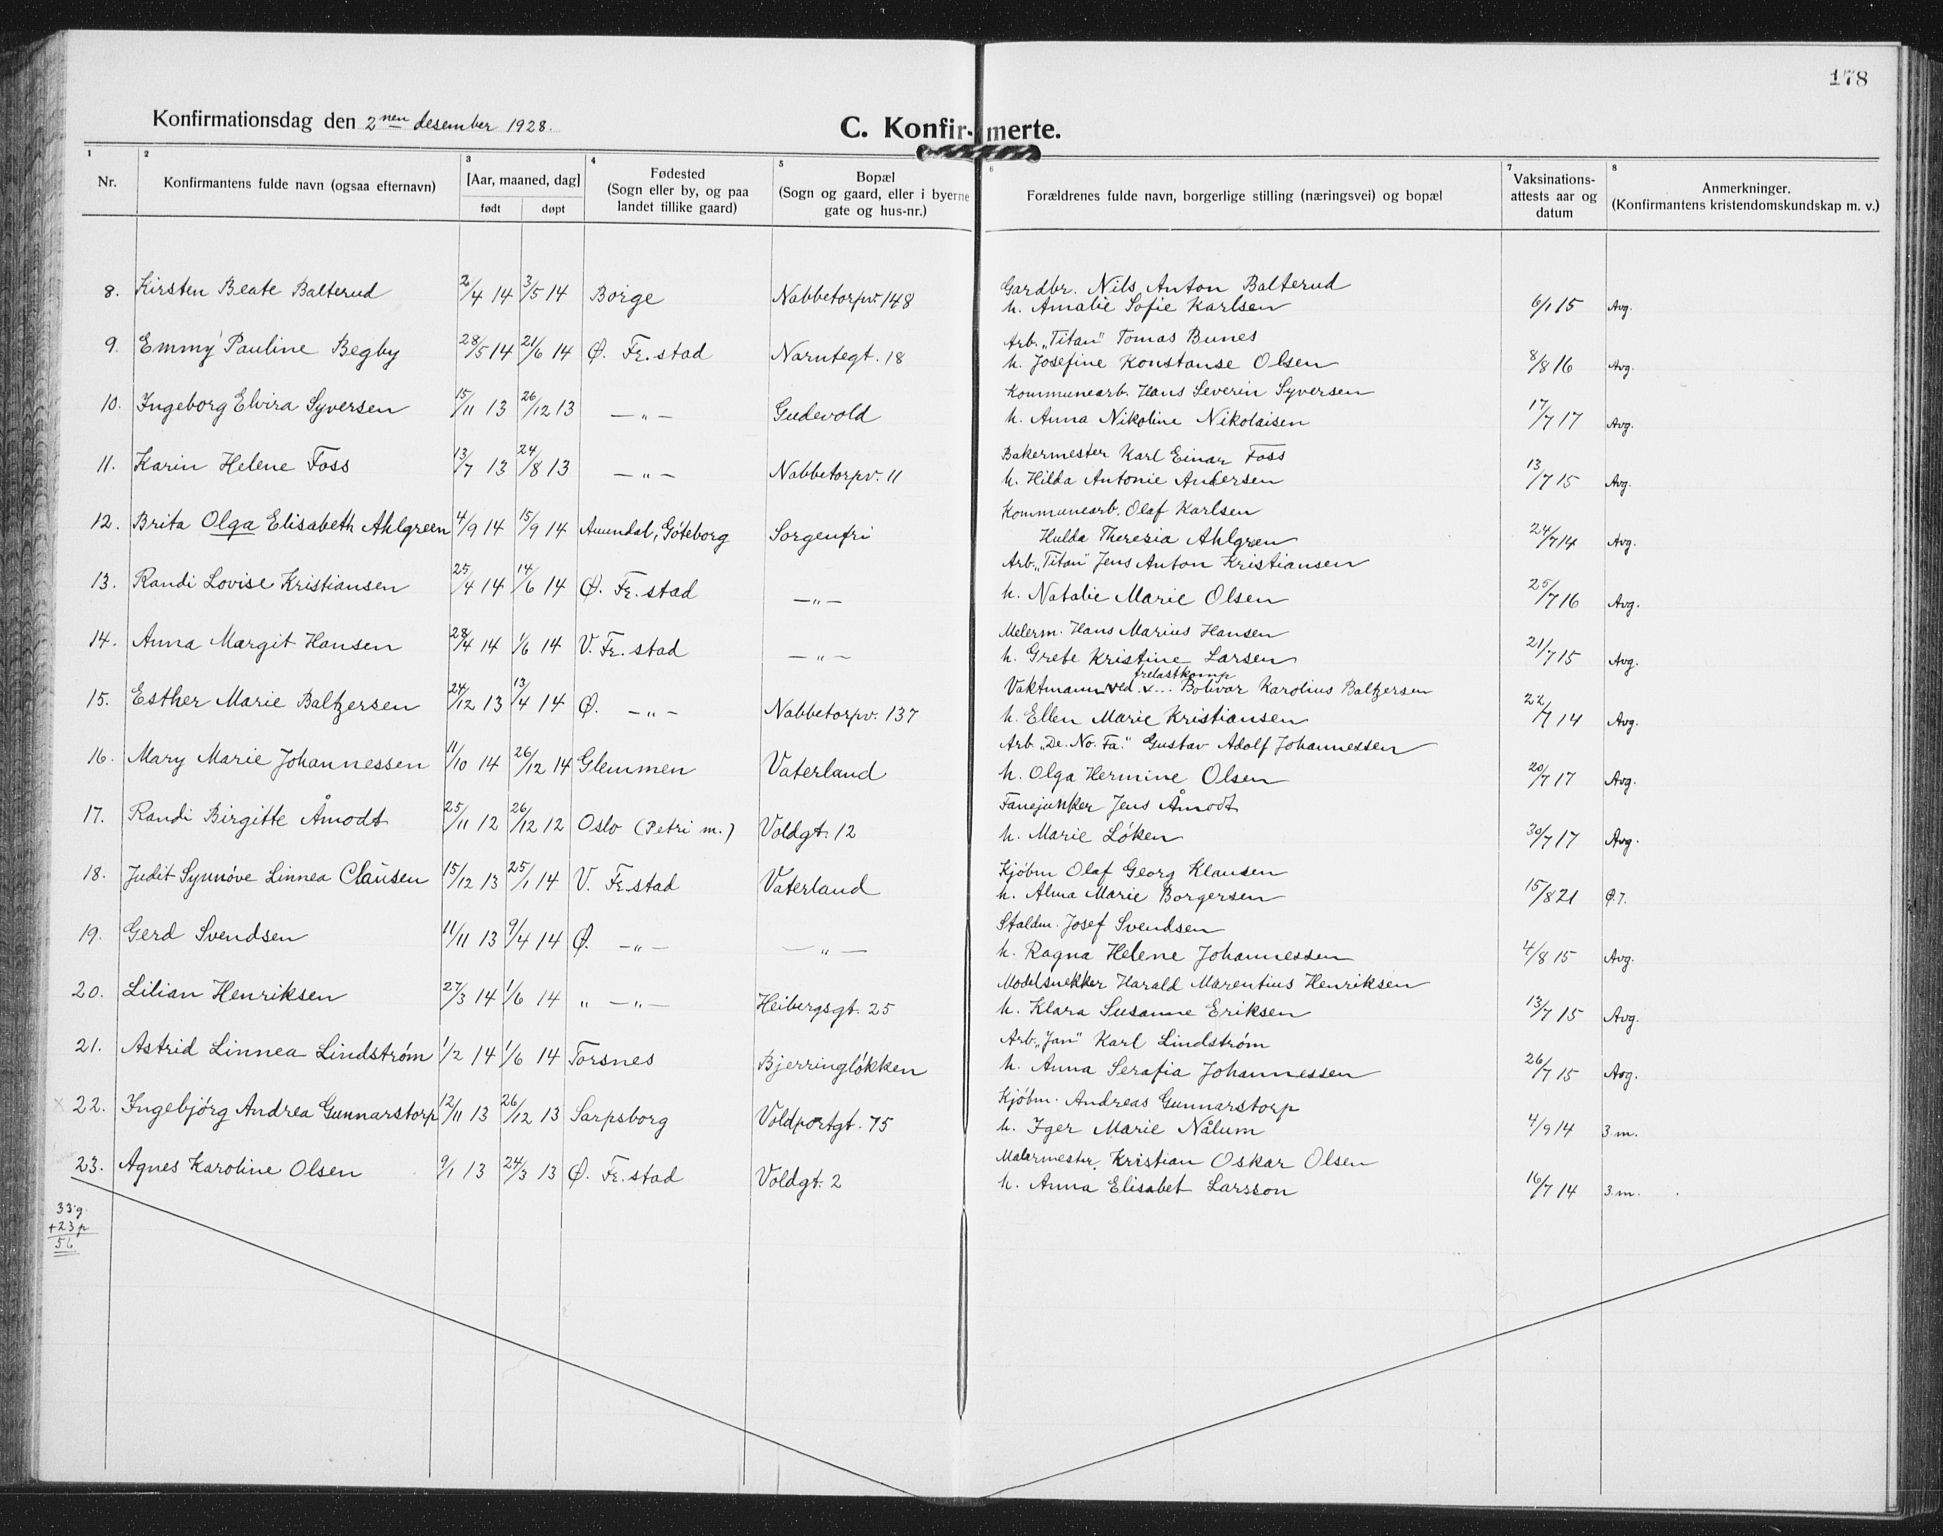 178
Konfirmationsdag den 2nen desember 1928.
C. Konfir- merte.
1 2 3 4 5 6 7 8
Nr. Konfirmantens fulde navn (ogsaa efternavn) [Aar, maaned, dag] født døpt Fødested (Sogn eller by, og paa landet tillike gaard) Bopæl (Sogn og gaard, eller i byerne gate og hus-nr.) Forældrenes fulde navn, borgerlige stilling (næringsvei) og bopæl Vaksinations-attests aar og datum Anmerkninger. (Konfirmantens kristendomskundskap m. v.)
8. Kirsten Beate Balterud 2/4 14 3/5 14 Borge Nabbetorpv. 148 Gardbr. Nils Anton Balterud
h. Amalie Sofie Karlsen 6/1 15 Avg.
9. Emmy Pauline Begby 28/5 14 21/6 14 Ø. Fr.stad Narntegt. 18 Arb. „Titan" Tomas Bunes
h. Josefine Konstanse Olsen 8/8 16 Avg.
10. Ingeborg Elvira Syversen 15/11 13 26/12 13 — „ — Gudevold Kommunearb. Hans Severin Syversen
h. Anna Nikoline Nikolaisen 17/7 17 Avg.
11. Karin Helene Foss 13/7 13 24/8 13 — „ — Nabbetorpv. 11 Bakermester Karl Einar Foss
h. Hilda Antonie Andersen 13/7 15 Avg.
12. Brita Olga Elisabeth Ahlgreen 4/9 14 15/9 14 Amundal, Göteborg Sorgenfri Kommunearb. Olaf Karlsen
Hulda Therezia Ahlgren 24/7 14 Avg.
13. Randi Lovise Kristiansen 25/4 14 14/6 14 Ø. Fr.stad — „ — Arb. „Titan" Jens Anton Kristiansen
h. Natalie Marie Olsen 25/7 16 Avg.
14. Anna Margit Hansen 28/4 14 1/6 14 V. Fr.stad — „ — Melerm. Hans Marius Hansen
h. Grete Kristine Larsen 21/7 15 Avg.
15. Esther Marie Baltzersen 24/12 13 13/4 14 Ø. — „ — Nabbetorpv. 137 Vaktmann ved trelastkomp Bolivar Karolius Baltzersen
h. Ellen Marie Kristiansen 22/7 14 Avg.
16. Mary Marie Johannessen 11/10 14 26/12 14 Glemmen Vaterland Arb. „De. No. Fa." Gustav Adolf Johannessen
h. Olga Hermine Olsen 20/7 17 Avg.
17. Randi Birgitte Åmodt 25/11 12 26/12 12 Oslo (Petri m.) Voldgt. 12 Fanejunker Jens Åmodt
h. Marie Løken 30/7 17 Avg.
18. Judit Synnöve Linnea Clausen 15/12 13 25/1 14 V. Fr.stad Vaterland Kjøbm Olaf Georg Klausen
h. Alma Marie Borgersen 15/8 21 Ø.7.
19. Gerd Svendsen 11/11 13 9/4 14 Ø. — „ — — „ — Staldm. Josef Svendsen
h. Ragna Helene Johannessen 4/8 15 Avg.
20. Lilian Henriksen 27/3 14 1/6 14 „ — „ — Heibergsgt. 25 Modelsnekker Harald Marentius Henriksen
h. Klara Susanne Eriksen 13/7 15 Avg.
21. Astrid Linnea Lindstrøm 1/2 14 1/6 14 Torsnes Bjerringløkken Arb. „Jan" Karl Lindstrøm
h. Anna Serafia Johannessen 26/7 15 Avg.
x 22. Ingebjörg Andrea Gunnarstorp 12/11 13 26/12 13 Sarpsborg Voldportgt. 75 Kjöbm. Andreas Gunnarstorp
h. Iger Marie Nålum 4/9 14 3 m.
23. Agnes Karoline Olsen 9/1 13 24/3 13 Ø. Fr.stad Voldgt. 2 Malermester. Kristian Oskar Olsen
h. Anna Elisabet Larsson 16/7 14 3 m.
33 g.
+23 p
56